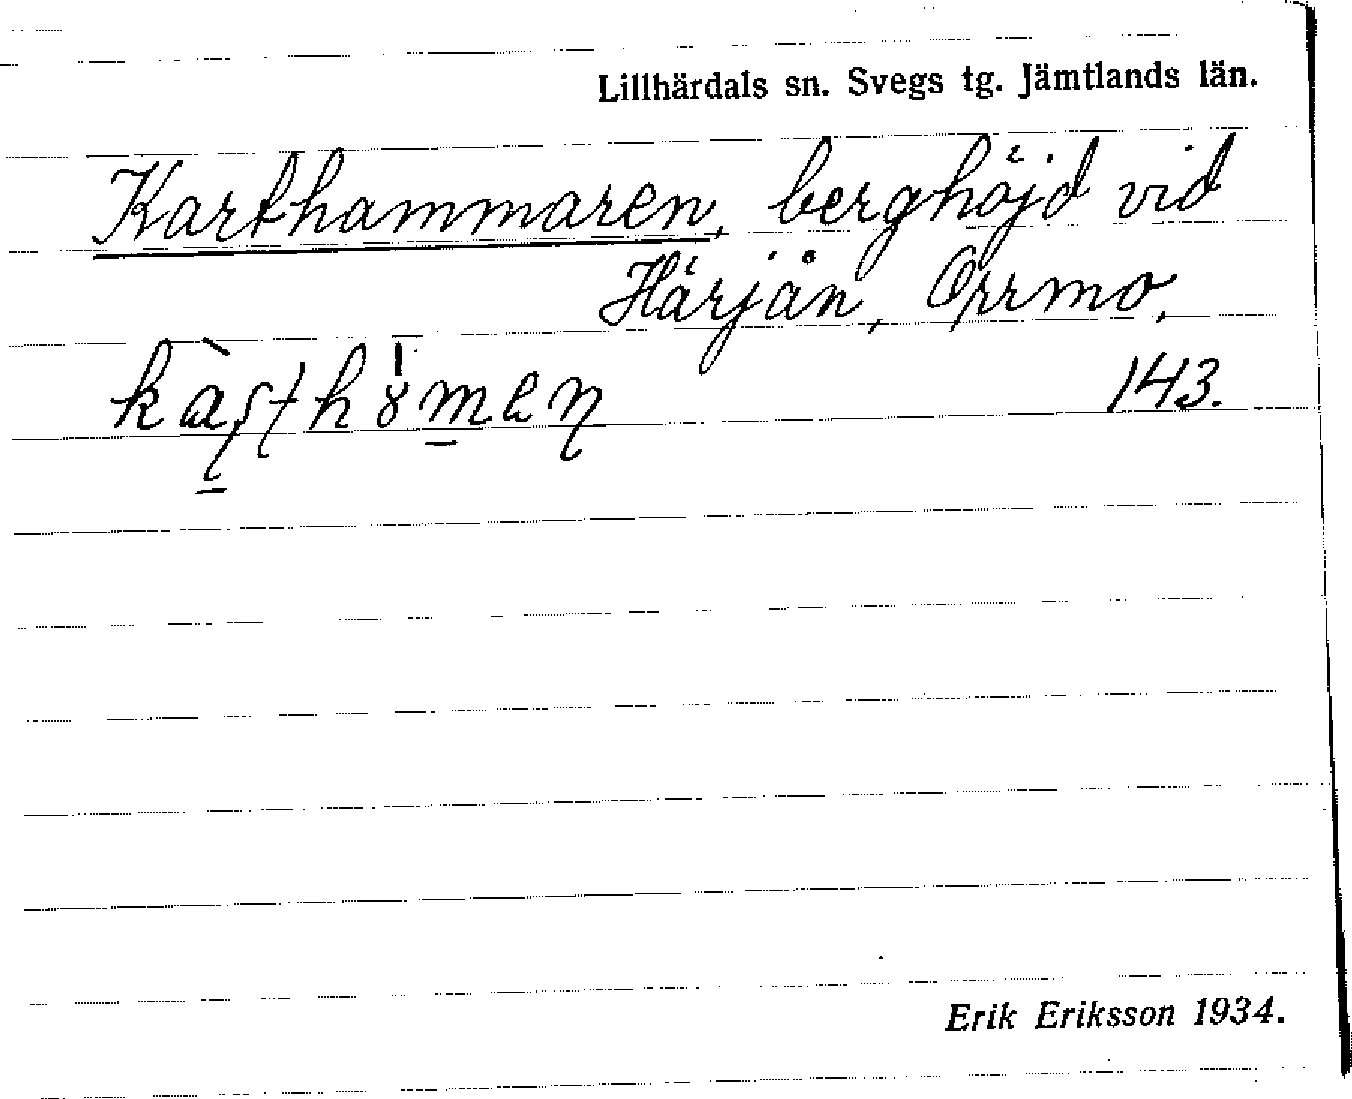 Lillhärdals sn. Svegs tg. Jämtlands län.
Karthammaren, berghöjd vid
Härjån, Orrmo,
143.
Erik Eriksson 1934.